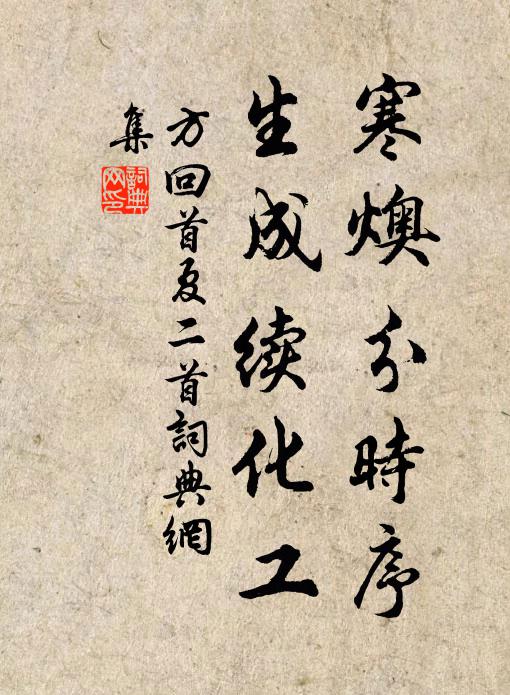 寒燠分時序
生成续化工
方回首夏二首詞典網
集
詞典
网印